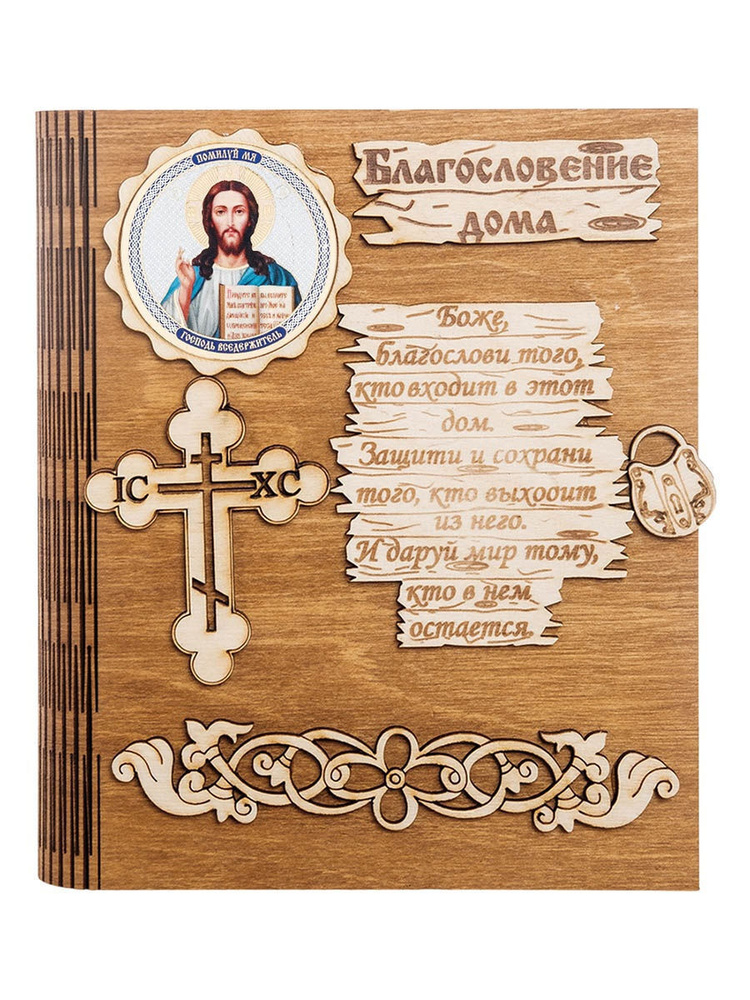 ПОМИЛУЙ МЯ
ГОСПОДЬ ВСЕДЕРЖИТЕЛЬ
Благословение
дома
IC XC
Боже,
благослови того,
кто входит в этот
дом.
Защити и сохрани
того, кто выходит
из него.
И даруй мир тому,
кто в нем
остается